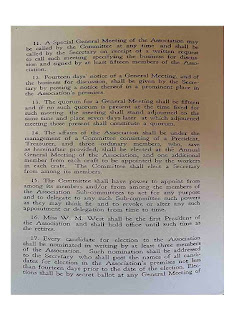 11. A Special General Meeting of the Association may
be called by the Committee at any time and shall be
called by the Secretary on receipt of a written request
to call such meeting specifying the business for discus-
sion and signed by at least fifteen members of the Asso-
ciation.
12. Fourteen days' notice of a General Meeting, and of
the business for discussion, shall be given by the Secre-
tary by posting a notice thereof in a prominent place in
the Association's premises.
13. The quorum for a General Meeting shall be fifteen
and if no such quorum is present at the time fixed for
such meeting, the meeting shall stand adjourned to the
same time and place seven days later at which adjourned
meeting those present shall constitute a quorum.
14. The affairs of the Association shall be under the
management of a Committee consisting of a President,
Treasurer, and three ordinary members, who, save
as hereinafter provided, shall be elected at the Annual
General Meeting of the Association, and one additional
member from each craft to be appointed by the workers
in each craft. The Committee shall elect a Secretary
from among its members.
15. The Committee shall have power to appoint from
among its members and/or from among the members of
the Association Sub-Committees to act for any purpose
and to delegate to any such Sub-committee such powers
as they may think fit and to revoke or alter any such
appointment or delegation from time to time.
16. Miss W. M. West shall be the first President of
the Association and shall hold office until such time as
she retires.
17. Every candidate for election to the Association
shall be nominated in writing by at least three members
of the Association. Such nomination shall be addressed
to the Secretary who shall post the names of all candi-
dates for election in the Association's premises not less
than fourteen days prior to the date of the election. Elec-
tions shall be by secret ballot at any General Meeting of